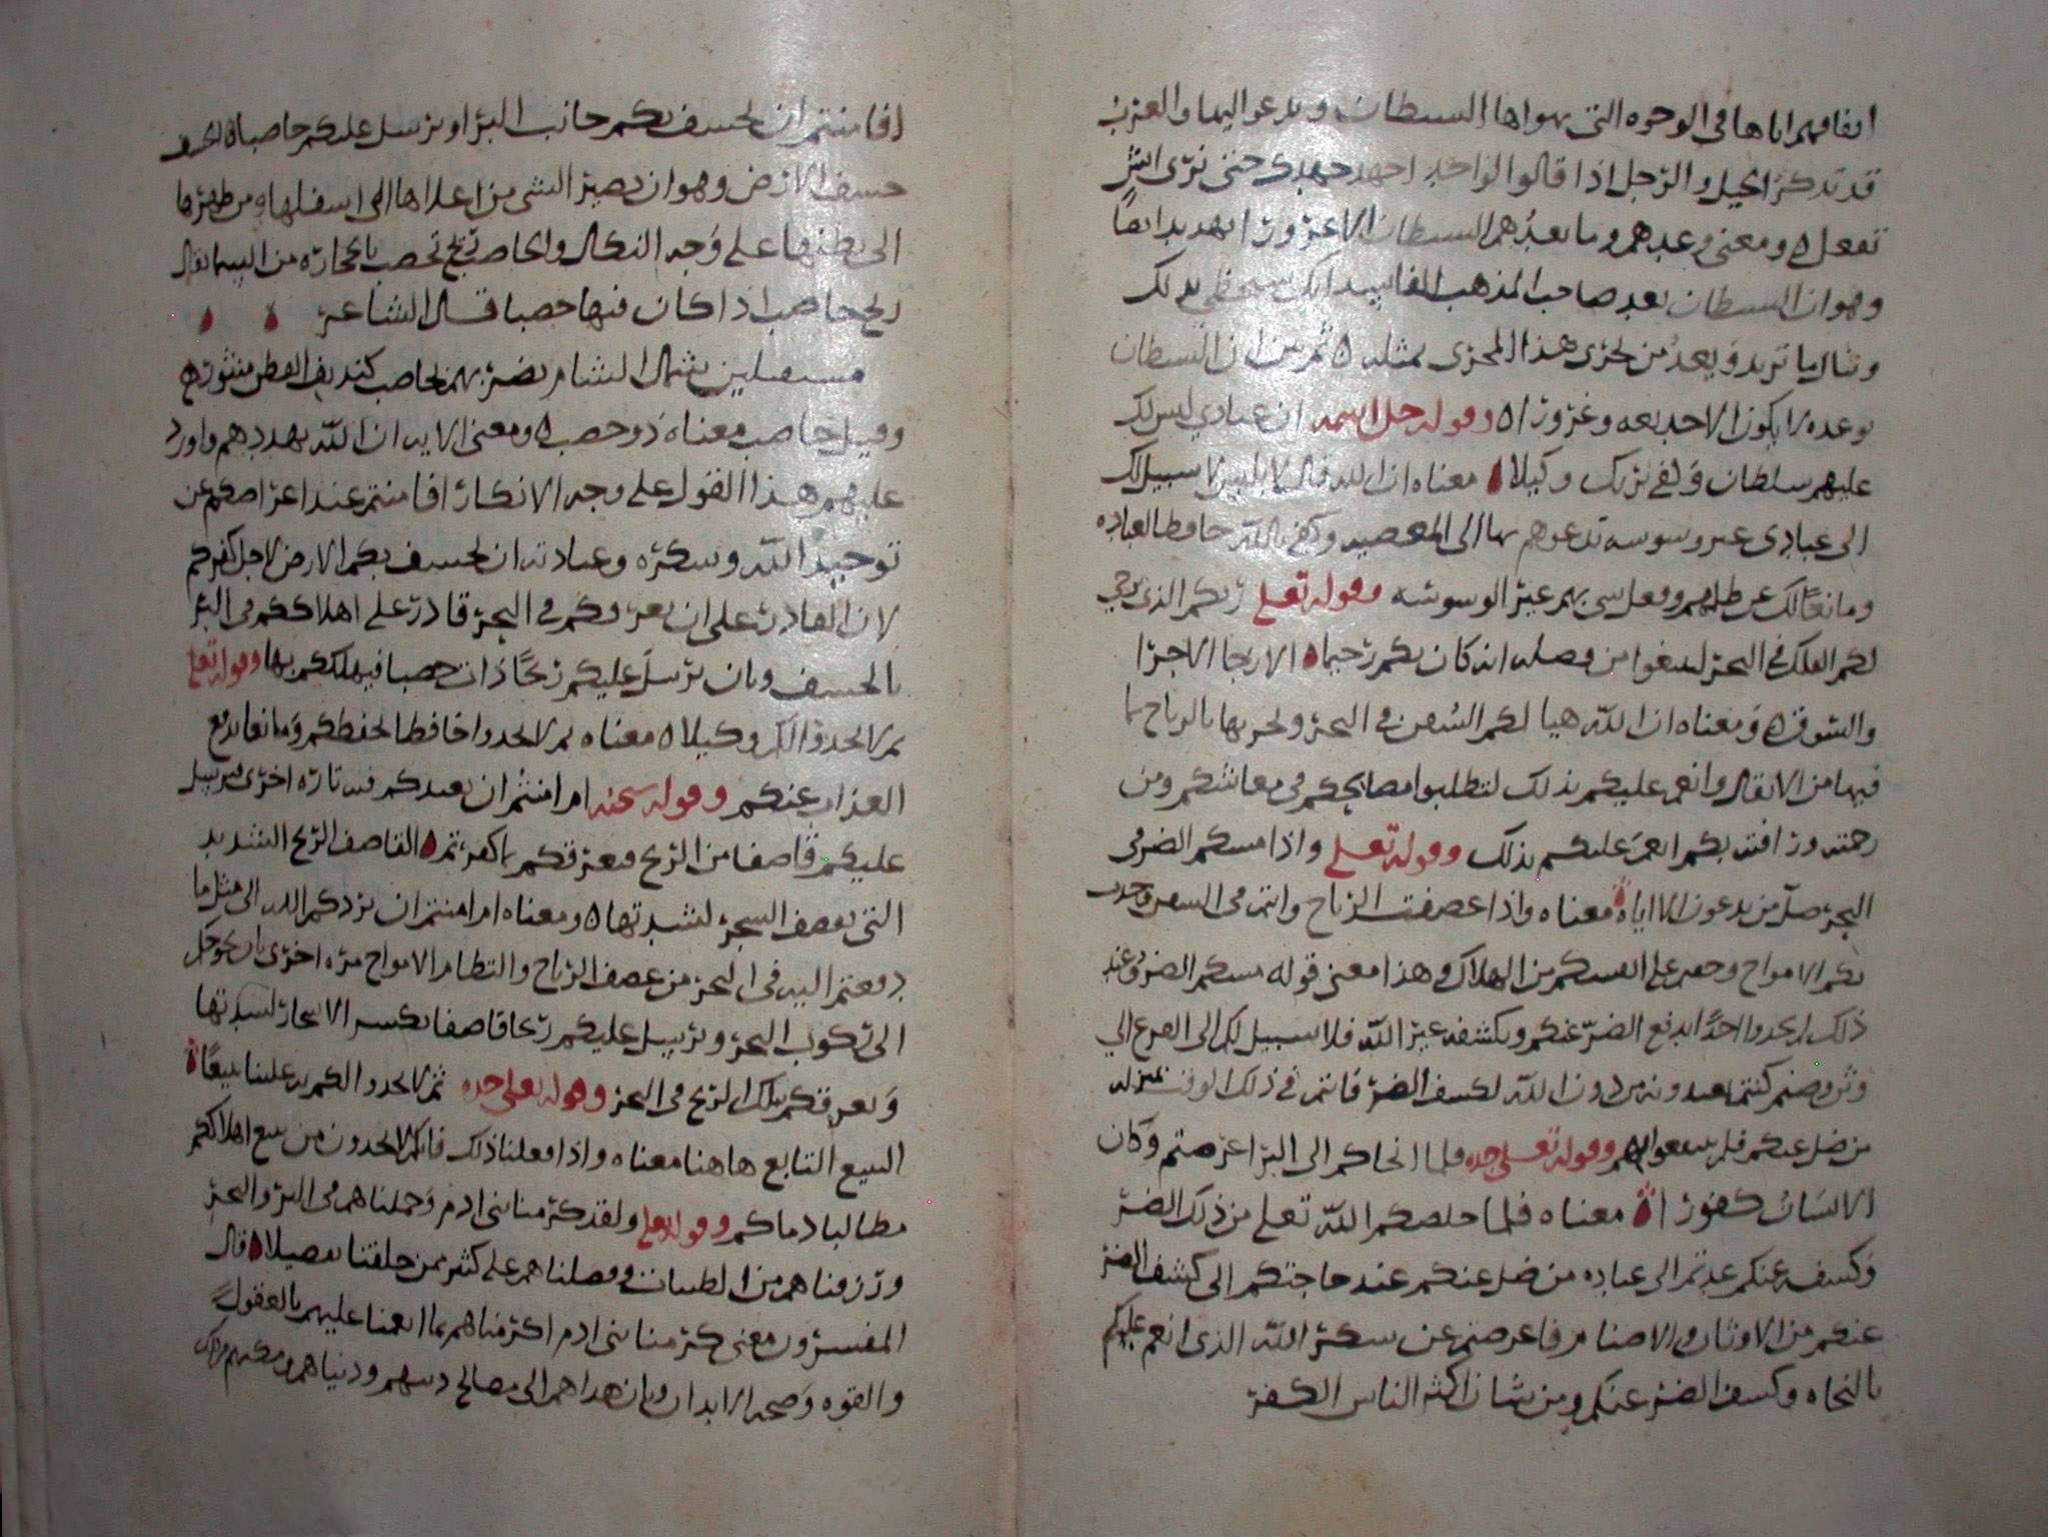 انفاقهم اياها في الوجوه التي يهواها الشيطان ويدعو اليها والعرب
قد تذكر الخيل والرجل اذا قالوا لواحد اجهد جهدك حتى نرى ايش
تفعل ومعنى وعدهم وما يعدهم الشيطان الا غرورا تهديد ايضا
وهو ان الشيطان يعد صاحب المذهب الفاسد انك ستحظى بذلك
وتنال ما تريد ويعد من يجري هذا المجرى بمثله ثم بين ان الشيطان
بوعده لا يكون الا خديعه وغرورا وقوله جل اسمه ان عبادي ليس لك
عليهم سلطان وكفى بربك وكيلا معناه ان الله قال لابليس لا سبيل لك
الى عبادي غير وسوسه تدعوهم بها الى المعصيه وكفى بالله حافظا لعباده
ومانعا لك عن ظلمهم وفعل شي بهم غير الوسوسه وقوله تعلى ربكم الذي يزجي
لكم الفلك في البحر لتبتغوا من فضله انه كان بكم رحيما الازجا الاجرا
والسوق ومعناه ان الله هيا لكم السفن في البحر ويجريها بالرياح بما
فيها من الاثقال وانعم عليكم بذلك لتطلبوا مصالحكم في معاشكم ومن
رحمته ورافته بكم انعم عليكم بذلك وقوله تعلى واذا مسكم الضر في
البحر ضل من تدعون الا اياه معناه واذا عصفت الرياح وانتم في السفن وجرت
بكم الامواج وخفتم على انفسكم من الهلاك وهذا معنى قوله مسكم الضر وعند
ذلك لم تجدوا احدا يدفع الضر عنكم ويكشفه غير الله فلا سبيل لكم الى الفزع الى
وثن وصنم كنتم تعبدونه من دون الله لكشف الضر فانتم في ذلك الوقت بمنزله
من ضل عنكم فلم ينفعوا وقوله تعلى جده فلما انجاكم الى البر اعرضتم وكان
الانسان كفورا معناه فلما خلصكم الله تعلى من ذلك الضر
وكشفه عنكم عدتم الى عباده من ضل عنكم عند حاجتكم الى كشف الضر
عنكم من الاوثان والاصنام فاعرضتم عن شكر الله الذي انعم عليكم
بالنجاه وكشف الضر عنكم ومن شان اكثر الناس الكفر
افامنتم ان يخسف بكم جانب البر او يرسل عليكم حاصبا الخسف
خسف الارض وهو ان يصير الشي من اعلاها الى اسفلها ومن ظهرها
الى بطنها على وجه النكال والحاصب ريح تحصب بالحجاره من السما يقال
ريح حاصب اذا كان فيها حصبا قال الشاعر
مستقبلين شمال الشام تضربهم بحاصب كنديف القطن منثور
وقيل حاصب معناه ذو حصب ومعنى الايه ان الله يهددهم واورد
عليهم هذا القول على وجه الانكار افامنتم عند اعراضكم عن
توحيد الله وشكره وعبادته ان يخسف بكم الارض لاجل كفركم
لان القادر على ان يغرقكم في البحر قادر على اهلاككم في البر
بالخسف وبان يرسل عليكم ريحا ذات حصبا فيهلككم بها وقوله تعلى
ثم لا تجدوا لكم وكيلا معناه ثم لا تجدوا حافظا يحفظكم ومانعا يدفع
العذاب عنكم وقوله سبحنه ام امنتم ان يعيدكم فيه تاره اخرى فيرسل
عليكم قاصفا من الريح فيغرقكم بما كفرتم القاصف الريح الشديد
التي تقصف الشجر لشدتها ومعناه ام امنتم ان يردكم الله الى مثل ما
دفعتم اليه في البحر من عصف الرياح والتطام الامواج مره اخرى بان يحوجكم
الى ركوب البحر ويرسل عليكم ريحا قاصفا يكسر الاشجار لشدتها
ويغرقكم بتلك الريح في البحر وقوله تعلى جده ثم لا تجدوا لكم به علينا تبيعا
التبيع التابع هاهنا معناه واذا فعلنا ذلك فانكم لا تجدون من يتبع اهلاككم
مطالبا دماكم وقوله تعلى ولقد كرمنا بني ادم وحملناهم في البر والبحر
ورزقناهم من الطيبات وفضلناهم على كثير ممن خلقنا تفضيلا قال
المفسرون معنى كرمنا بني ادم اكرمناهم بما انعمنا عليهم بالعقول
والقوه وصحه الابدان وبان هداهم الى مصالح دينهم ودنياهم